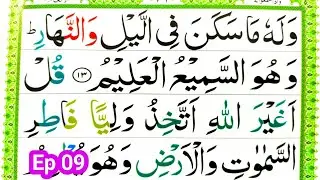 وَلَهٗ مَا سَكَنَ فِی الَّیْلِ وَالنَّهَارِ ؕ
وَهُوَ السَّمِیْعُ الْعَلِیْمُ ۝۱۳ قُلْ
اَغَیْرَ اللّٰهِ اَتَّخِذُ وَلِیًّا فَاطِرِ
السَّمٰوٰتِ وَالْاَرْضِ وَهُوَ
Ep 09